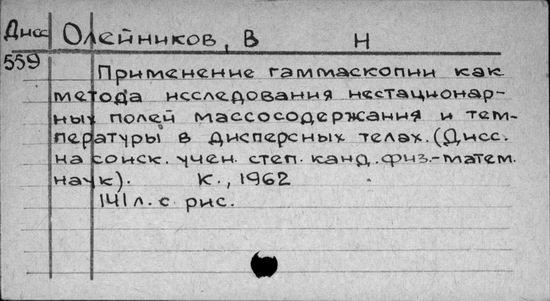 Дисс Олейников, В Н
559
Применение гаммаскопии как
метода исследования нестационар-
ных полей массосодержания и тем-
пературы в дисперсных телах. (Дисс.
на соиск. учен. степ. канд. физ.-матем.
наук). К., 1962
141 л. с рис.